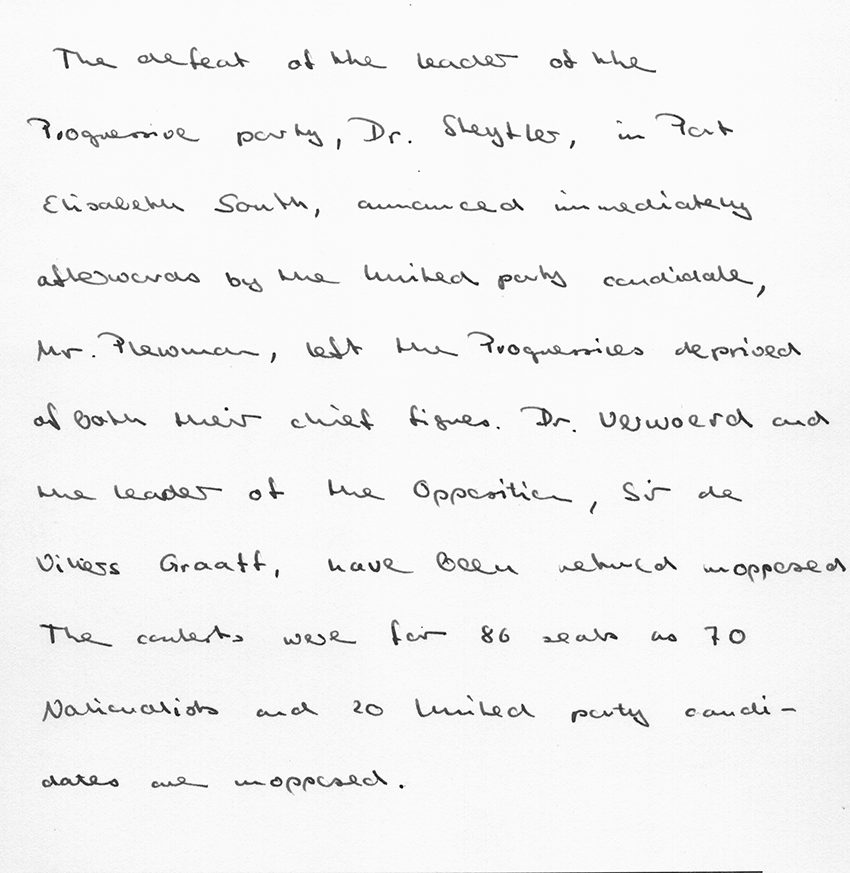 The defeat of the leader of the
Progressive party, Dr. Steytler, in Port
Elisabeth South, announced immediately
afterwards by the United party candidate,
Mr. Plewman, left the Progressives deprived
of both their chief figures. Dr. Verwoerd and
the leader of the Opposition, Sir de
Villiers Graaff, have been returned unopposed
The contests were for 86 seats as 70
Nationalists and 20 United party candi-
dates are unopposed.